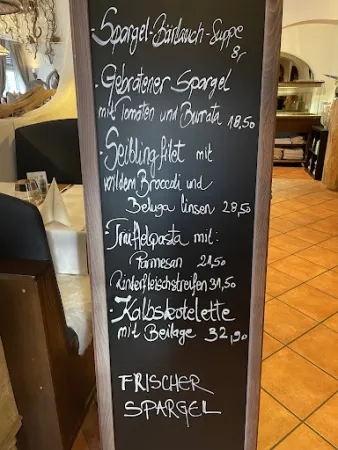 · Spargel-Bärlauch-Suppe
8,-
· Gebratener Spargel
mit Tomaten und Burrata 18,50
· Seiblingfilet mit
wildem Broccoli und
Beluga linsen 28,50
· Trüffelpasta mit:
Parmesan 21,50
Rinderfleischstreifen 31,50
· Kalbskotelette
mit Beilage 32,90
FRISCHER
SPARGEL